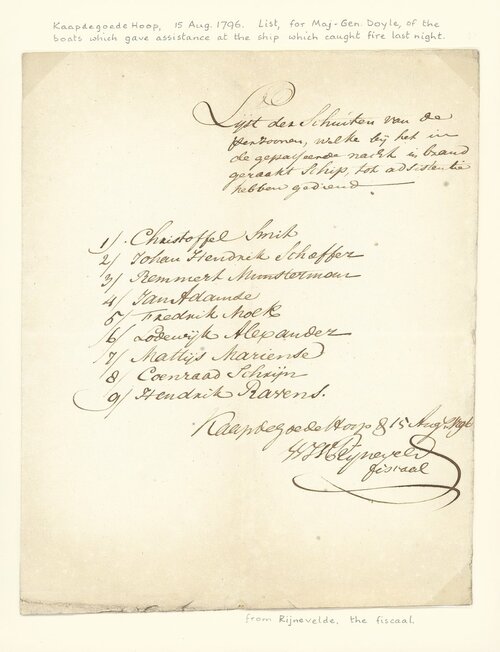 Kaapdegoede Hoop, 15 Aug. 1796. List, for Maj-Gen. Doyle, of the
boats which gave assistance at the ship which caught fire last night.
Lijst der Schuiten van de
Perzoonen, welke bij het in
de gepasseerde nacht in brand
geraakt Schip, tot adsistentie
hebben gediend.
1/ Christoffel Smit
2/ Johan Hendrik Schaffer
3/ Remmert Munsterman
4/ Jan Adamde
5/ Fredrik Moek
6/ Lodewijk Alexander
7/ Mattijs Mariense
8/ Coenraad Schrijn
9/ Hendrik Ravens.
Kaapdegoede Hoop 15 Aug 1796
Rijneveld
fiscaal
from Rijnevelde, the fiscaal.